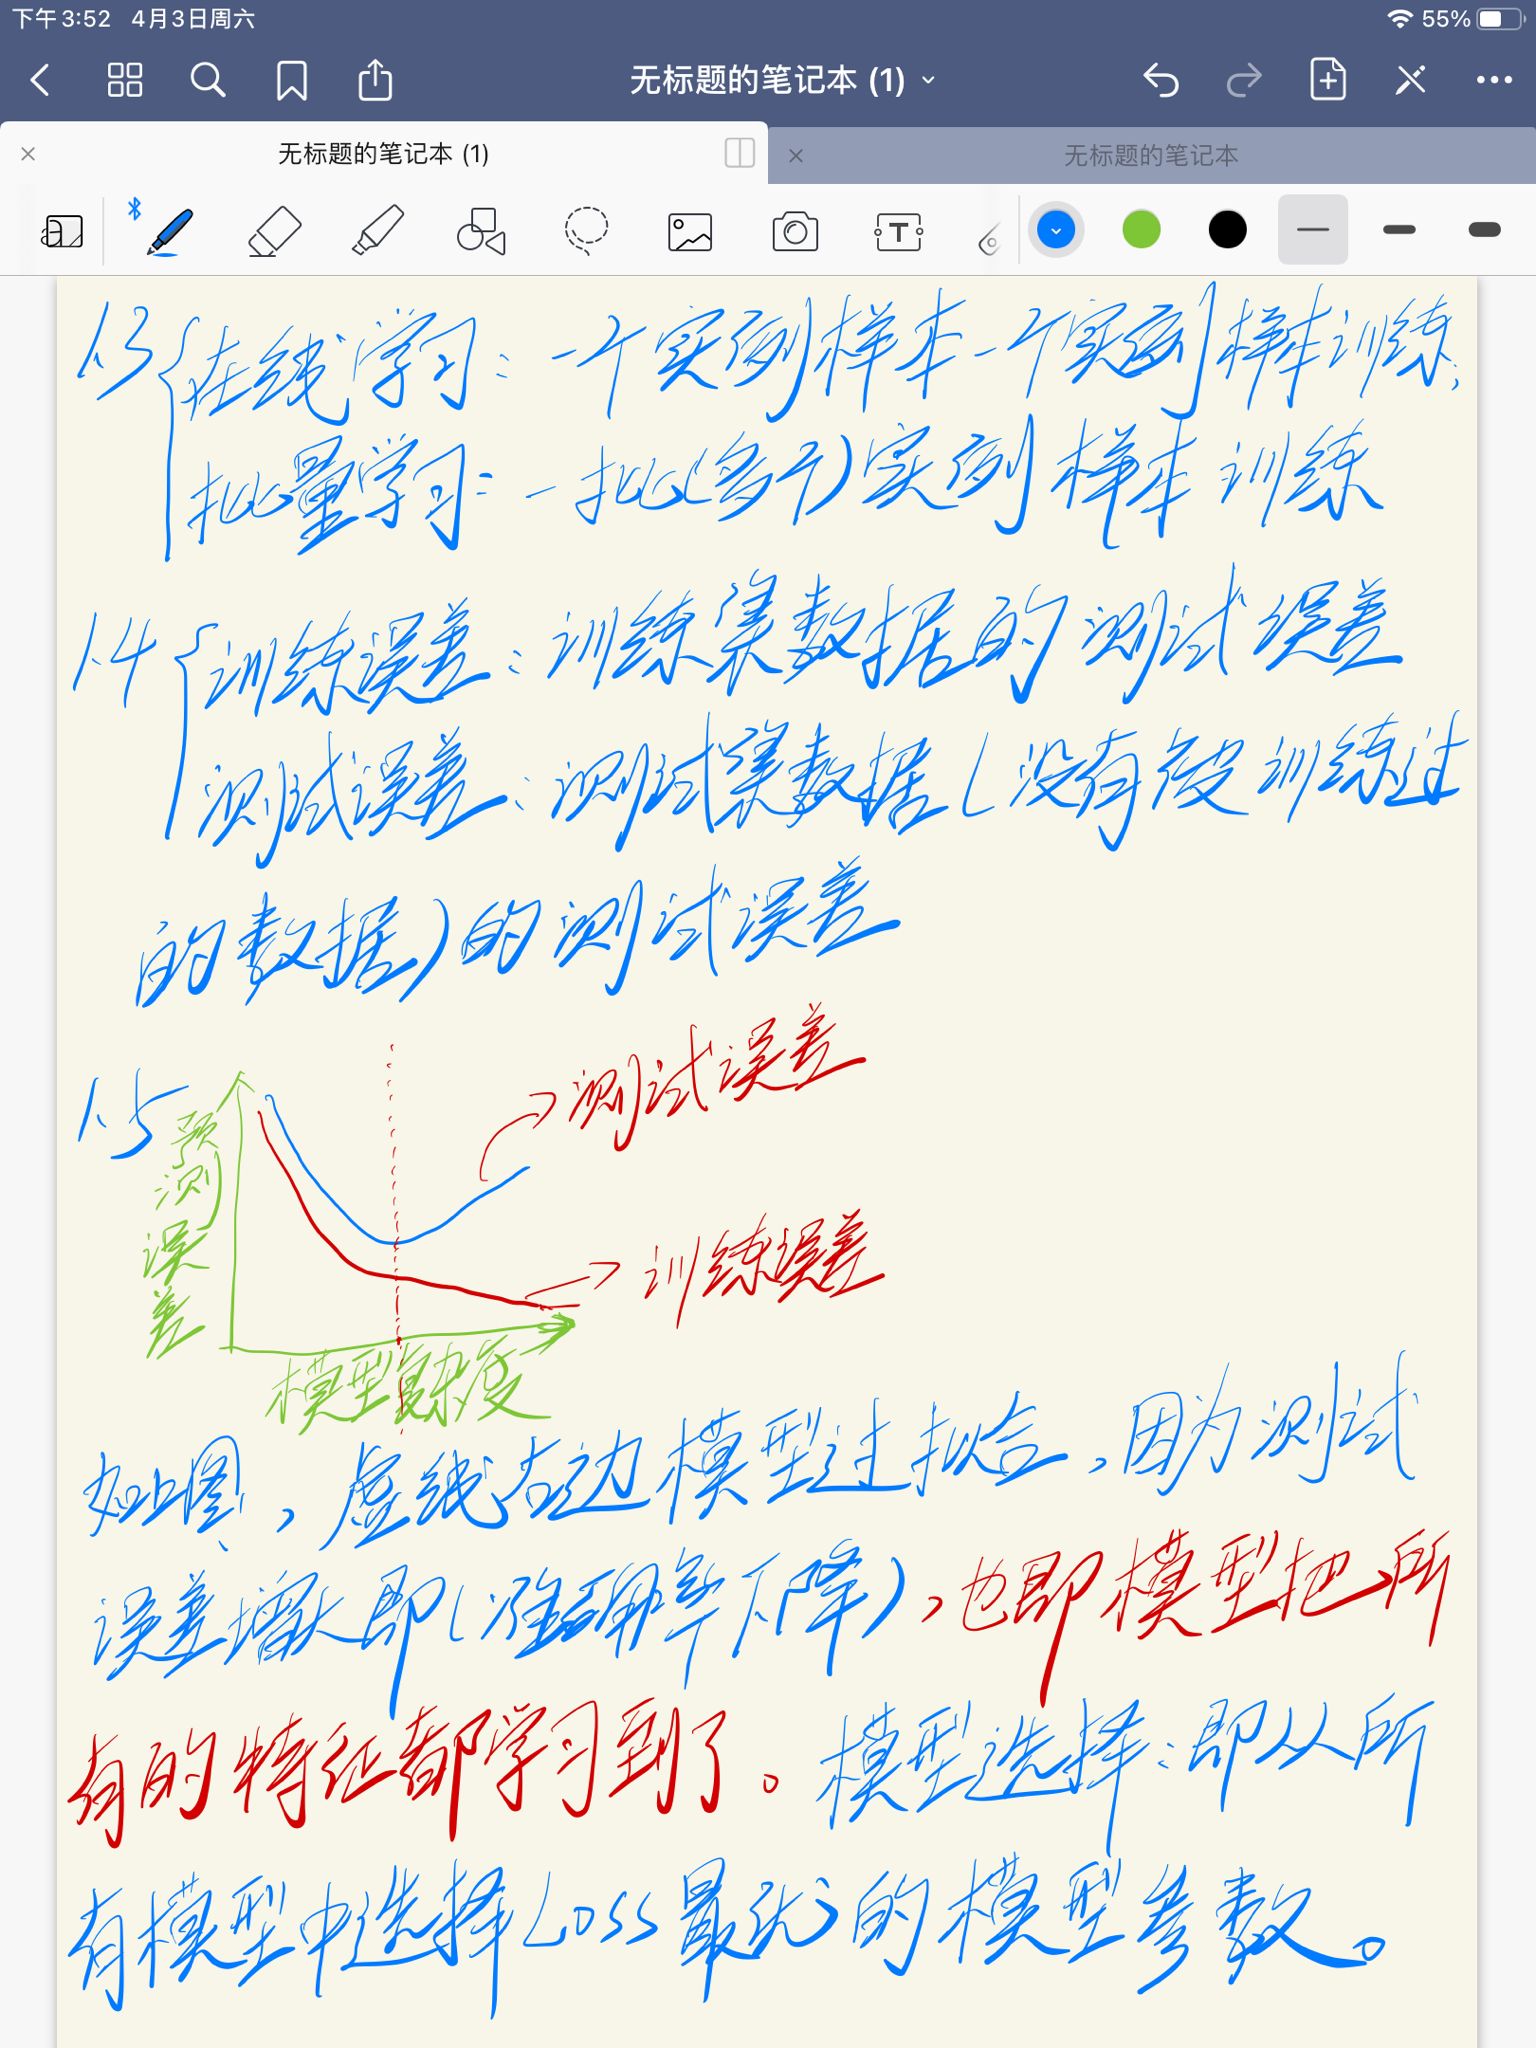 下午3:52 4月3日周六
55%
无标题的笔记本 (1)
无标题的笔记本 (1)
无标题的笔记本
1.3 在线学习：一个实例样本一个实例样本训练；
批量学习：一批(多个)实例样本训练
1.4 训练误差：训练集数据的测试误差
测试误差：测试集数据(没有被训练过
的数据)的测试误差
1.5
测试误差
预测误差
训练误差
模型复杂度
如上图，虚线右边模型过拟合，因为测试
误差增大即(准确率下降)，也即模型把所
有的特征都学习到了。模型选择：即从所
有模型中选择Loss最优的模型参数。